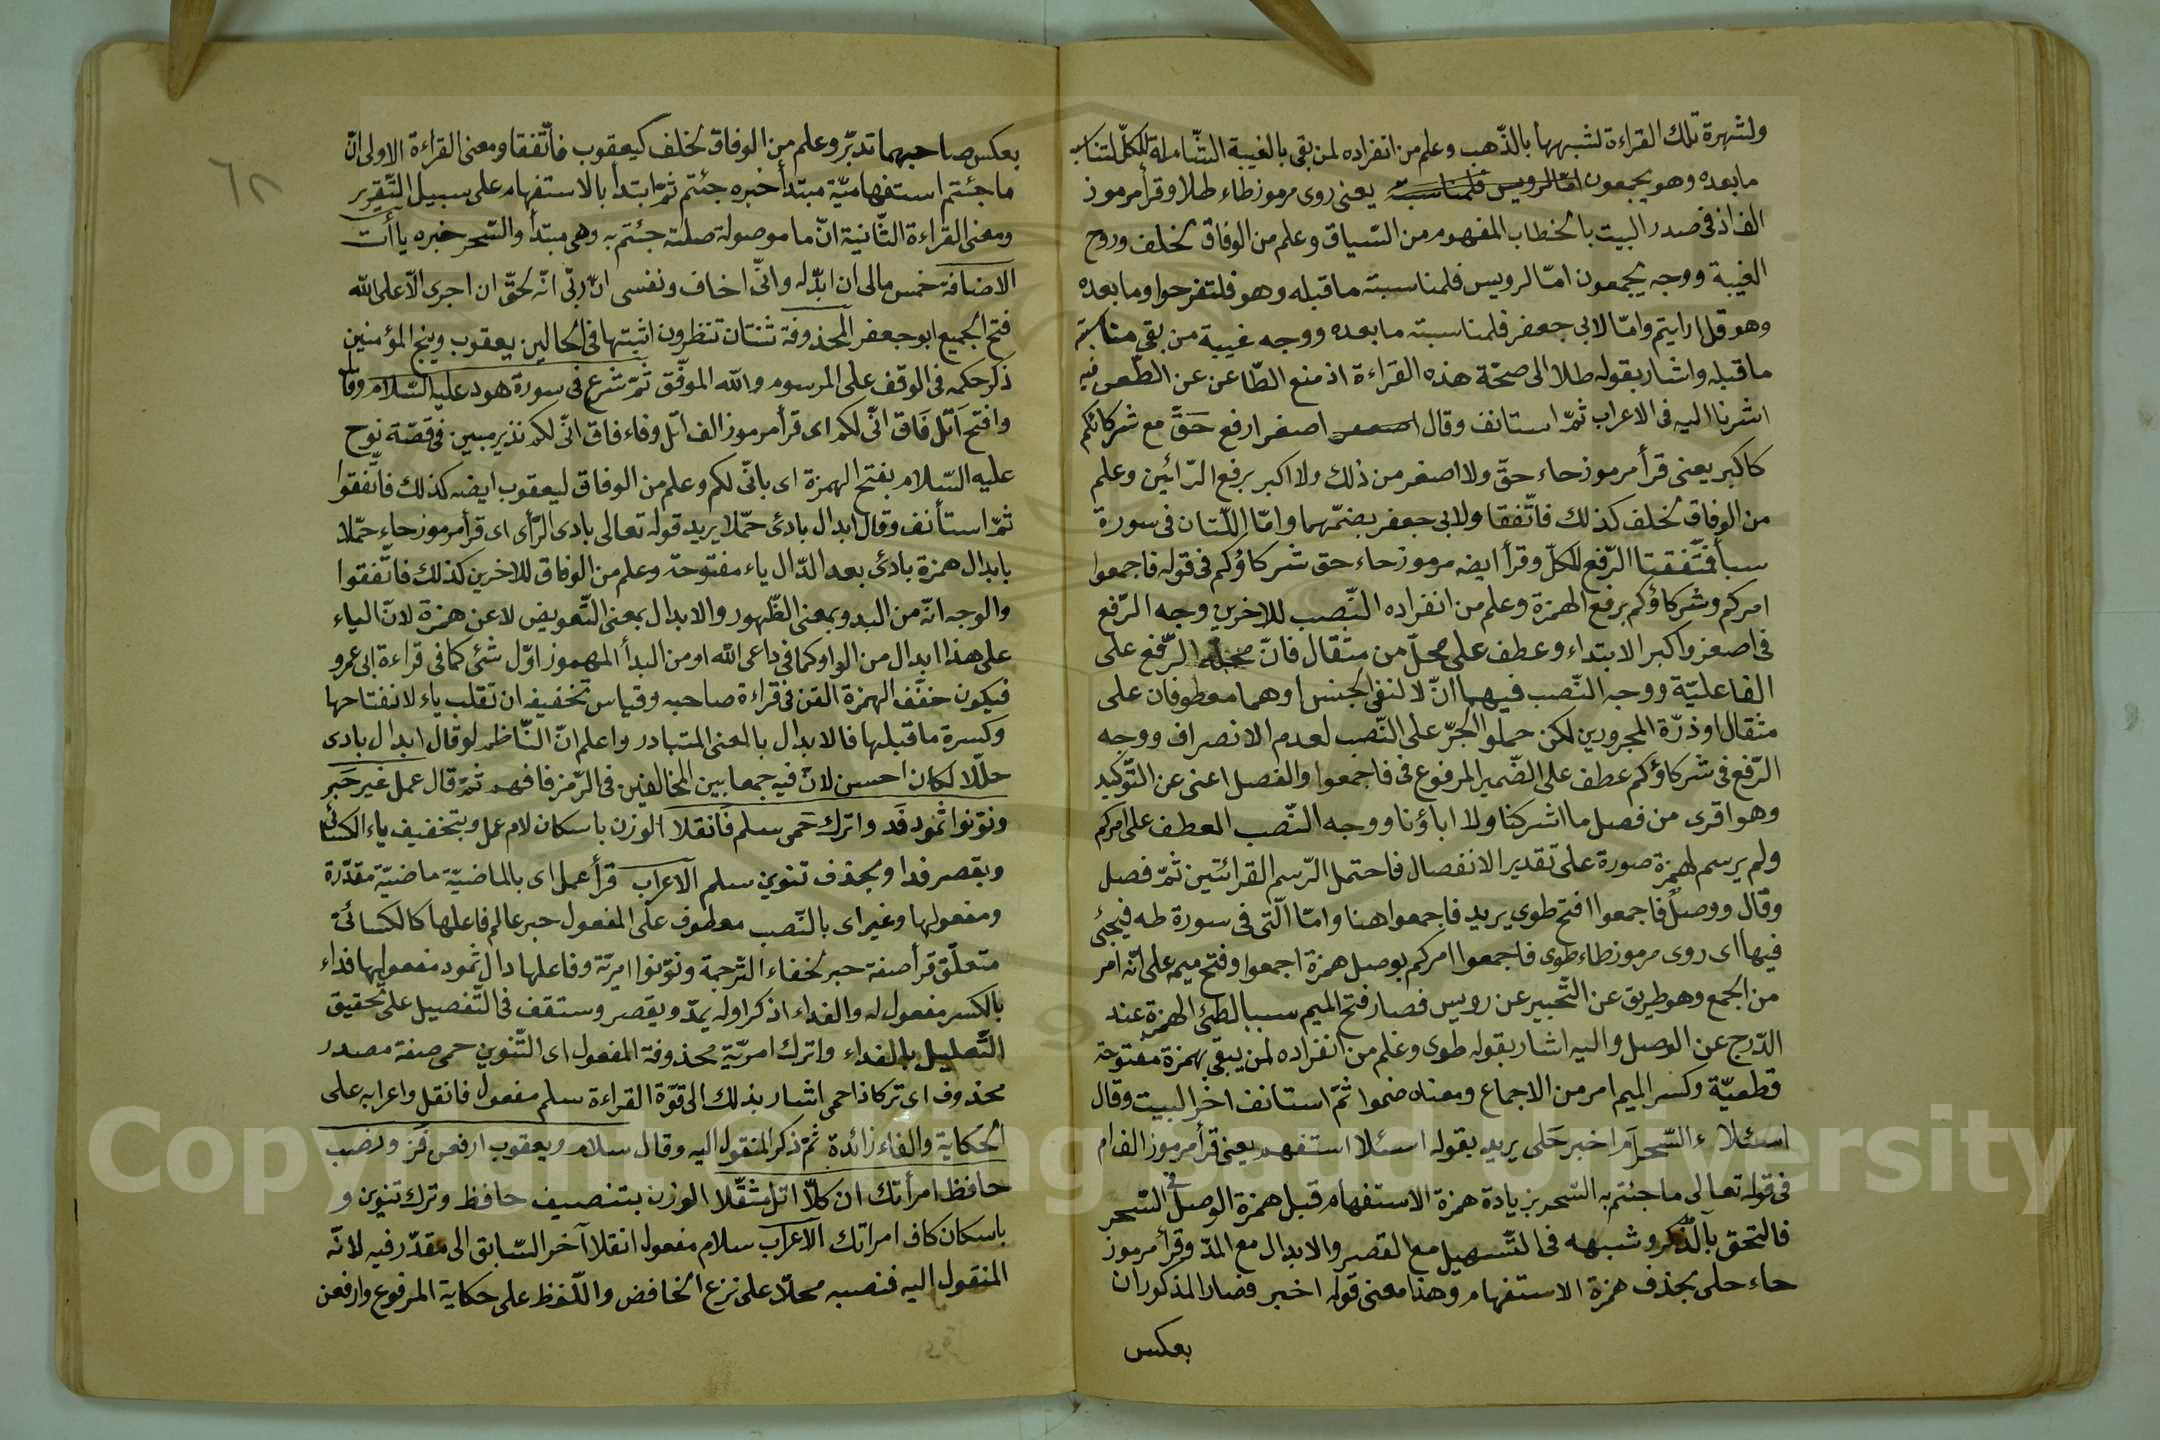 ولشهرة تلك القراءة لشبهها بالذّهب وعلم من انفراده لمن بقى بالغيبة الشّاملة للكلّ لتناسب
مابعده وهو يجمعون امّا لرويس فلمناسبته يعنى روى مرموز طاء طلا وقرأ مرموز
الف اذ فى صدر البيت بالخطاب المفهوم من السّياق وعلم من الوفاق لخلف وروح
الغيبة ووجه يجمعون امّا لرويس فلمناسبته ماقبله وهو فلتفرحوا ومابعده
وهو قل ارايتم وامّا لابى جعفر فلمناسبته مابعده ووجه غيبة من بقى مناسبته
ماقبله واشار بقوله طلا الى صحّة هذه القراءة اذ منع الطّاعن عن الطّعن فيه
اشرنا اليه فى الاعراب ثمّ استانف وقال اصغر ارفع حقّ مع شركائكم
كاكبر يعنى قرأ مرموز حاء حقّ ولا اصغر من ذلك ولا اكبر برفع الرّائين وعلم
من الوفاق لخلف كذلك فاتّفقا ولابى جعفر بضمّهما وامّا اللّتان فى سورة
سبأ فتّفقتا الرّفع للكلّ وقرأ ايضه مرموز حاء حق شركاؤكم فى قوله فاجمعوا
امركم وشركاؤكم برفع الهمزة وعلم من انفراده النّصب للاخرين وجه الرّفع
فى اصغر واكبر الابتداء وعطف على محلّ من مثقال فانّ محلّه الرّفع على
الفاعليّة ووجه النّصب فيهما انّ لا لنفى الجنس او هما معطوفان على
مثقال او ذرّة المجرورين لكن حملوا الجرّ على النّصب لعدم الانصراف ووجه
الرّفع فى شركاؤكم عطف على الضّمير المرفوع فى فاجمعوا والفصل اغنى عن التّوكيد
وهو اقرى من فصل ما اشركنا ولا اباؤنا ووجه النّصب العطف على امركم
ولم يرسم لهمزة صورة على تقدير الانفصال فاحتمل الرّسم القرائتين ثمّ فصل
وقال ووصل فاجمعوا افتح طوى يريد فاجمعوا هنا وامّا الّتى فى سورة طه فيجئ
فيها اى روى مرموز طاء طوى فاجمعوا امركم بوصل همزة اجمعوا وفتح ميمه على انّه امر
من الجمع وهو طريق عن التّحبير عن رويس فصار فتح الميم سببا لطىّ الهمزة عند
الدّرج عن الوصل واليه اشار بقوله طوى وعلم من انفراده لمن يبقى بهمزة مفتوحة
قطعيّة وكسر الميم امر من الاجماع ومعناه ضموا ثمّ استانف اخر البيت وقال
اسئلا ء السّحر ام اخبر حلى يريد بقوله اسئلا استفهم يعنى قرأ مرموز الف ام
فى قوله تعالى ماجئتم به السّحر بزيادة همزة الاستفهام قبل همزة الوصل فى السّحر
فالتحق بآلذّكر وشبهه فى التّسهيل مع القصر والابدال مع المدّ وقرأ مرموز
حاء حلى بحذف همزة الاستفهام وهذا معنى قوله اخبر فصار المذكوران
بعكس
٦٨
بعكس صاحبهما تدبّر وعلم من الوفاق لخلف كيعقوب فاتّفقا ومعنى القراءة الاولى انّ
ماجئتم استفهاميّة مبتدأ خبره جئتم ثمّ ابتدأ بالاستفهام على سبيل التّقرير
ومعنى القراءة الثّانية انّ ما موصولة صلته جئتم به وهى مبتدأ والسّحر خبره ياأت
الاضافة خمس مالى ان ابدّله وانّى اخاف ونفسى انّ ربّى انّه لحقّ ان اجرى الّا على الله
فتح الجميع ابو جعفر المحذوفة ثنتان تنظرون اثبتها فى الحالين يعقوب وينج المؤمنين
ذكر حكمه فى الوقف على المرسوم والله الموفّق ثمّ شرع فى سورة هود عليه السّلام وقال
وافتح اتل فاق انّى لكم اى قرأ مرموز الف اتل وفاء فاق انّى لكم نذير مبين فى قصّة نوح
عليه السّلام بفتح الهمزة اى بانّى لكم وعلم من الوفاق ليعقوب ايضه كذلك فاتّفقوا
ثمّ استأنف وقال ابدال بادئ حمّلا يريد قوله تعالى بادى الرّأى اى قرأ مرموز حاء حمّلا
بابدال همزة بادئ بعد الدّال ياء مفتوحة وعلم من الوفاق للاخرين كذلك فاتّفقوا
والوجه انّه من البدو بمعنى الظّهور والابدال بمعنى التّعويض لا عن همزة لانّ الياء
على هذا ابدال من الواو كما فى داعى الله او من البدأ المهموز اوّل شئ كما فى قراءة ابى عمرو
فيكون خفّف الهمزة الفرْ فى قراءة صاحبه وقياس تخفيفه ان تقلب ياء لانفتاحها
وكسرة ماقبلها فالابدال بالمعنى المتبادر واعلم انّ النّاظم لو قال ابدال بادى
حلّلا لكان احسن لانّ فيه جمعا بين المخالفين فى الرّمز فافهم ثمّ قال عمل غير حبر
ونوّنوا ثمود فد واترك حمى سلم فانقلا الوزن باسكان لام عمل وبتخفيف ياء الكسائى
وبقصر فدا وبحذف تنوين سلم الاعراب قرأ عمل اى بالماضيّة ماضيّة مقدّرة
ومفعولها وغير اى بالنّصب معطوف على المفعول حبر عالم فاعلها كالكسائىّ
متعلّق قرأ صفة حبر لخفاء التّرجمة ونوّنوا امريّة وفاعلها دال ثمود مفعولها فداء
بالكسر مفعول له والفداء اذ كراوله يمدّ ويقصر وستقف فى التّفصيل على تحقيق
التّعليل بالفداء واترك امريّة محذوفة المفعول اى التّنوين حمى صفة مصدر
محذوف اى تركا ذا حمى اشار بذلك الى قوّة القراءة سلم مفعول فانقل واعرابه على
الحكاية والفاء زائدة ثمّ ذكر المنقول اليه وقال سلام ويعقوب ارفعن فز ونصب
حافظ امرأتك ان كلّا اتل مثقّلا الوزن بتنصيف حافظ وترك تنوين و
باسكان كاف امراتك الاعراب سلام مفعول انقلا آخر السّابق الى مقدّر فيه لانّه
المنقول اليه فنصبه محلّا على نزع الخافض واللّفظ على حكاية المرفوع وارفعن
Copyright © King Saud University